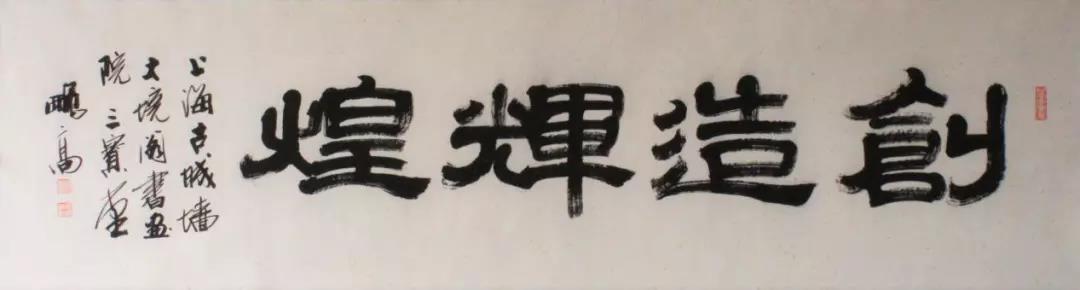 創造輝煌
上海古城墙
大境阁書画
院三寶堂
鵬高